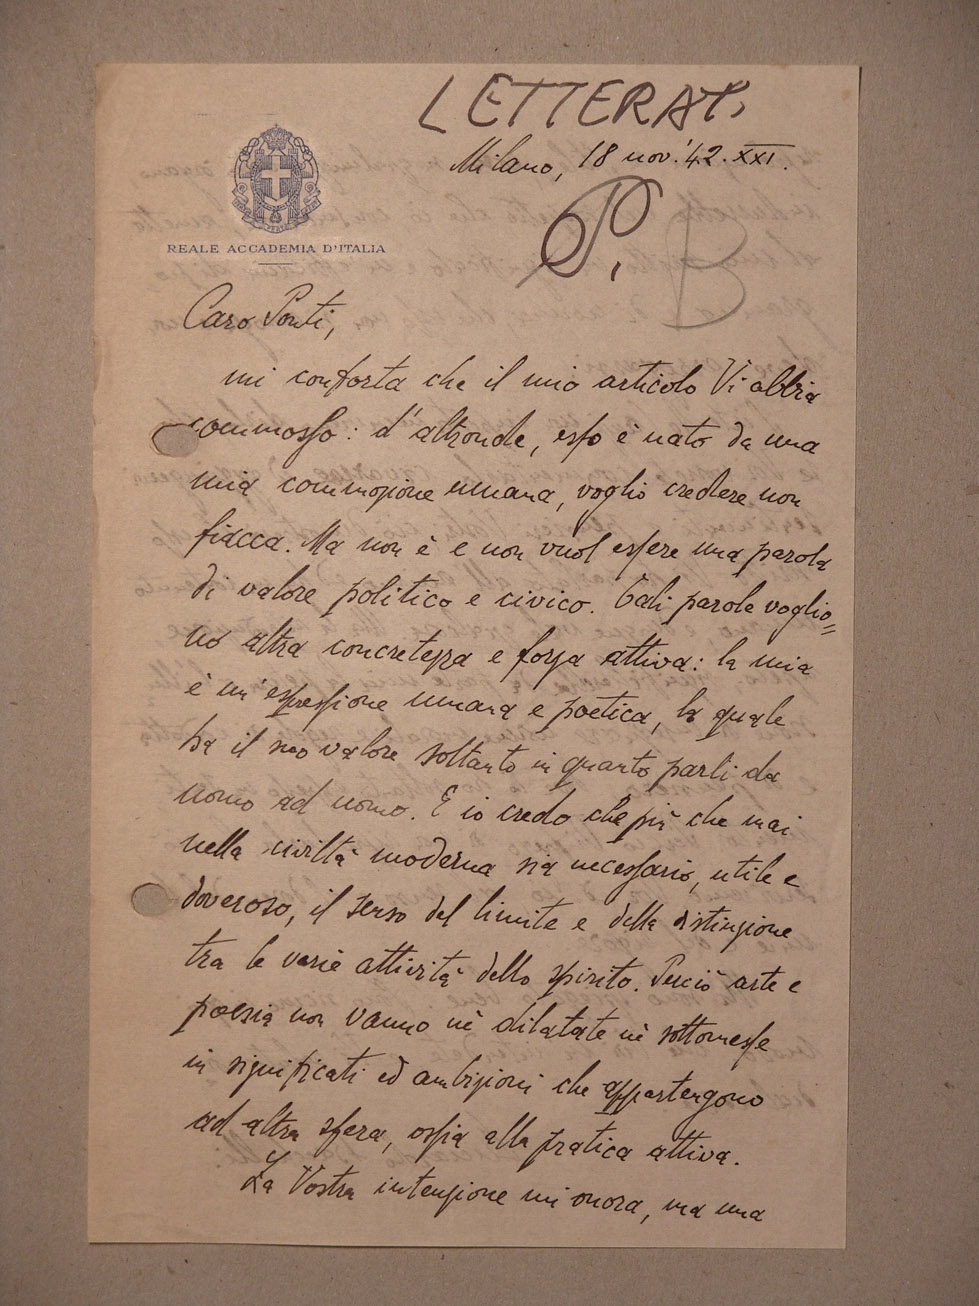 LETTERATI
Milano, 18 nov. '42. XXI.
P. B
REALE ACCADEMIA D'ITALIA
Caro Ponti,
mi conforta che il mio articolo Vi abbia
commosso: d'altronde, esso è nato da una
mia commozione umana, voglio credere non
fiacca. Ma non è e non vuol essere una parola
di valore politico e civico. Tali parole voglio=
no altra concretezza e forza attiva: la mia
è un'espressione umana e poetica, la quale
ha il suo valore soltanto in quanto parli da
uomo ad uomo. E io credo che più che mai
nella civiltà moderna sia necessario, utile e
doveroso, il senso del limite e della distinzione
tra le varie attività dello spirito. Perciò arte e
poesia non vanno nè dilatate nè sottomesse
in significati ed ambizioni che appartengono
ad altra sfera, ossia alla pratica attiva.
La Vostra intenzione mi onora, ma una